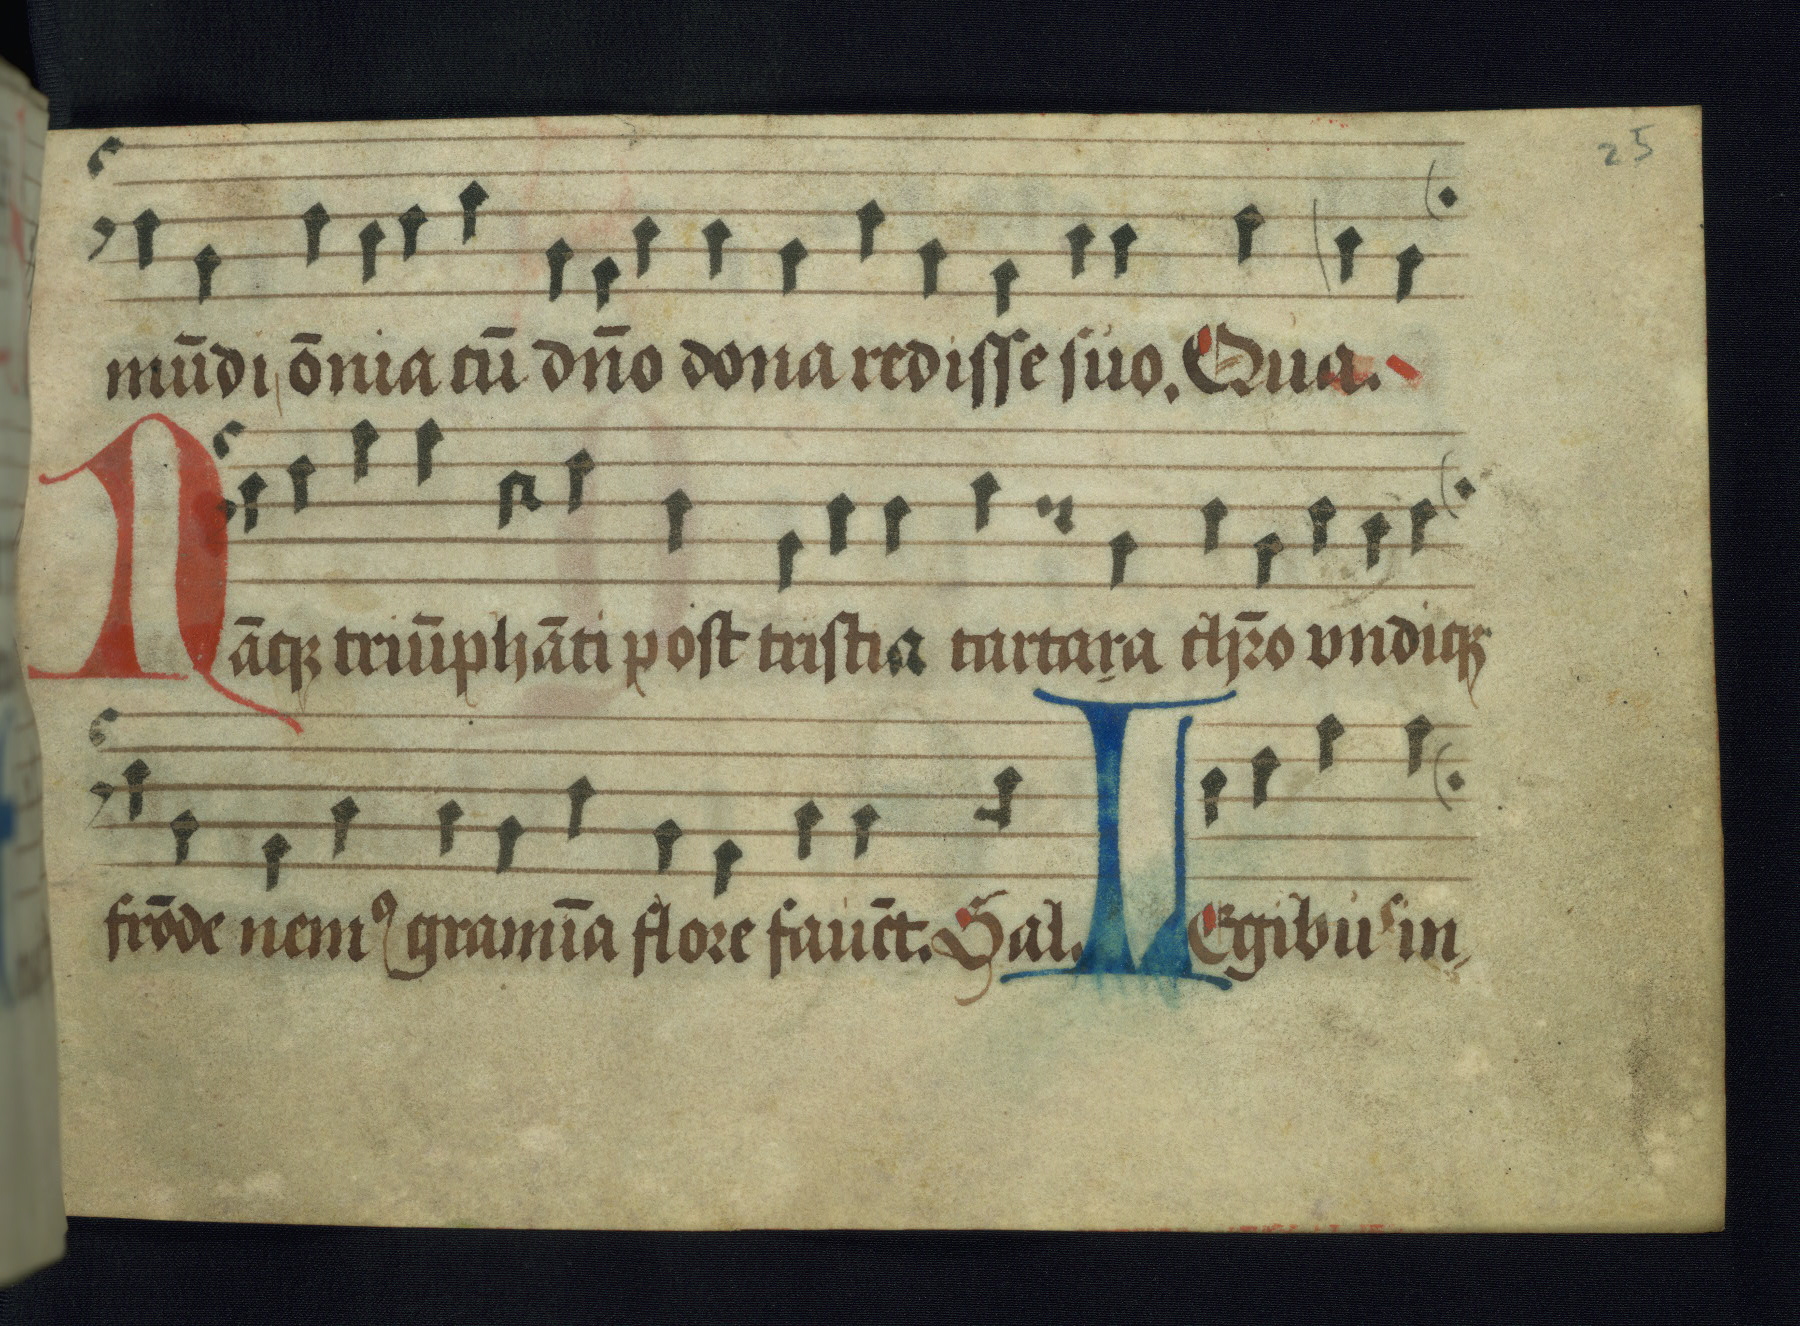 25
mūdi ōnia cū dn̄o dona redisse suo. Qua.
Nāq₃ triūphāti post tristia tartara ch̄ro vndiq₃
frōde nemꝰ gramīa flore fauēt. Sal. LEgibus in